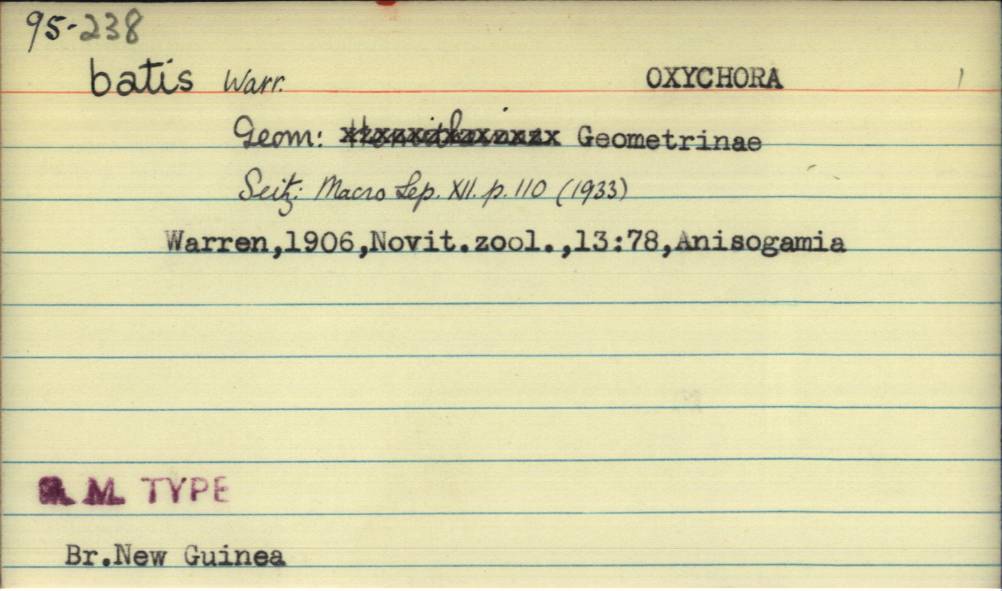 95-238
batis Warr. OXYCHORA 1
Geom: Geometrinae
Seitz: Macro Lep. XII. p. 110 (1933)
Warren,1906,Novit.zool.,13:78,Anisogamia
M. TYPE
Br.New Guinea